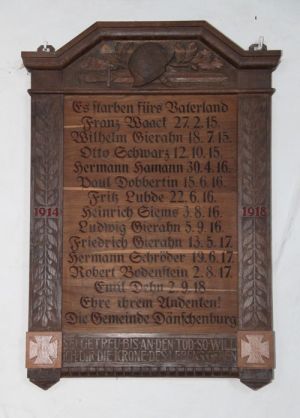 Es starben fürs Vaterland
Franz Waack 27.2.15.
Wilhelm Gierahn 18.7.15.
Otto Schwarz 12.10.15.
Hermann Hamann 30.4.16.
Paul Dobbertin 15.6.16.
Fritz Lubde 22.6.16.
Heinrich Siems 3.8.16.
Ludwig Gierahn 5.9.16.
1914
1918
Friedrich Gierahn 13.5.17.
Hermann Schröder 19.6.17.
Robert Bodenstein 2.8.17.
Emil Dohn 2.9.18.
Ehre ihrem Andenken!
Die Gemeinde Dänschenburg
SEI GETREU BIS AN DEN TOD SO WILL
ICH DIR DIE KRONE DES LEBENS GEBEN